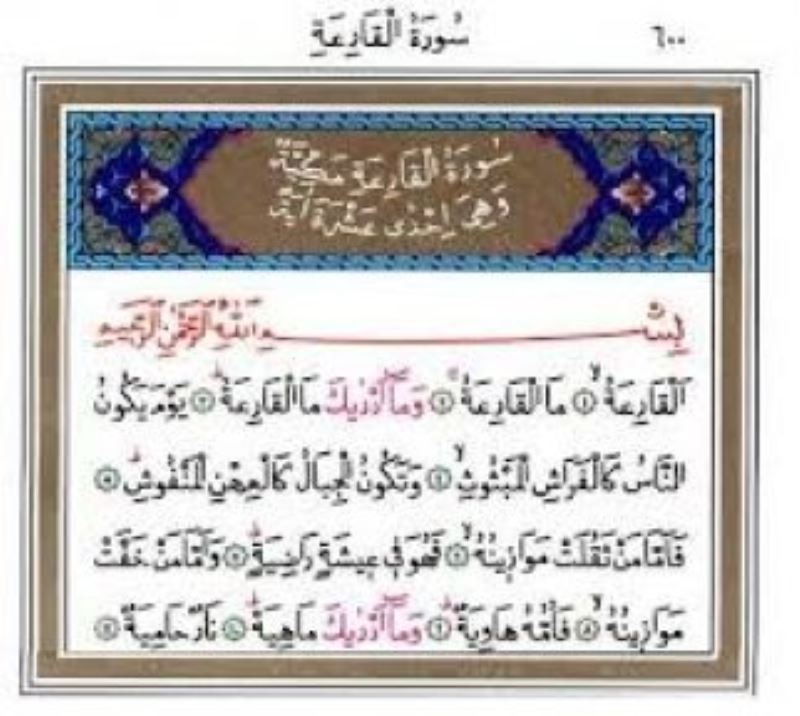 سُورَةُ الْقَارِعَةِ ٦٠٠
سُورَةُ الْقَارِعَةِ مَكِّيَّةٌ
وَهِيَ اِحْدٰى عَشْرَةَ اٰيَةً
بِسْمِ اللّٰهِ الرَّحْمٰنِ الرَّحِيمِ
اَلْقَارِعَةُۙ ﴿١﴾ مَا الْقَارِعَةُۚ ﴿٢﴾ وَمَٓا اَدْرٰيكَ مَا الْقَارِعَةُۜ ﴿٣﴾ يَوْمَ يَكُونُ
النَّاسُ كَالْفَرَاشِ الْمَبْثُوثِۙ ﴿٤﴾ وَتَكُونُ الْجِبَالُ كَالْعِهْنِ الْمَنْفُوشِۜ ﴿٥﴾
فَاَمَّا مَنْ ثَقُلَتْ مَوَازِينُهُۙ ﴿٦﴾ فَهُوَ فِي عِيشَةٍ رَاضِيَةٍۜ ﴿٧﴾ وَاَمَّا مَنْ خَفَّتْ
مَوَازِينُهُۙ ﴿٨﴾ فَاُمُّهُ هَاوِيَةٌۜ ﴿٩﴾ وَمَٓا اَدْرٰيكَ مَاهِيَهْۜ ﴿١٠﴾ نَارٌ حَامِيَةٌ ﴿١١﴾